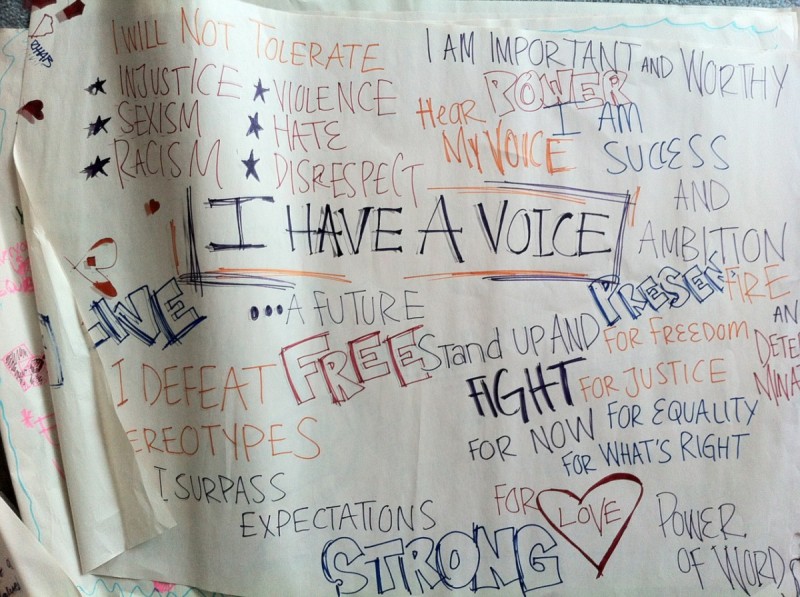 I WILL NOT TOLERATE
★ INJUSTICE
★ SEXISM
★ RACISM
★ VIOLENCE
★ HATE
★ DISRESPECT
I AM IMPORTANT AND WORTHY
POWER
HEAR
MY VOICE
I AM
SUCCESS
AND
AMBITION
I HAVE A VOICE
...A FUTURE
PRESENT
FIRE
AN
DETER
MINAT
FREE
I DEFEAT
EREOTYPES
Stand UP AND
FIGHT
FOR FREEDOM
FOR JUSTICE
FOR NOW FOR EQUALITY
FOR WHAT'S RIGHT
I SURPASS
EXPECTATIONS
STRONG
FOR LOVE
POWER
OF WORDS